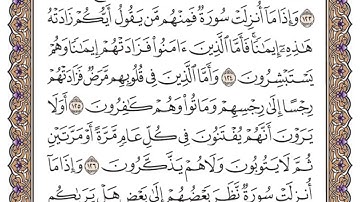 ١٢٣ وَإِذَا مَا أُنزِلَتْ سُورَةٌ فَمِنْهُم مَّن يَقُولُ أَيُّكُمْ زَادَتْهُ
هَٰذِهِۦٓ إِيمَٰنًا ۚ فَأَمَّا ٱلَّذِينَ ءَامَنُوا۟ فَزَادَتْهُمْ إِيمَٰنًا وَهُمْ
يَسْتَبْشِرُونَ ١٢٤ وَأَمَّا ٱلَّذِينَ فِى قُلُوبِهِم مَّرَضٌ فَزَادَتْهُمْ
رِجْسًا إِلَىٰ رِجْسِهِمْ وَمَاتُوا۟ وَهُمْ كَٰفِرُونَ ١٢٥ أَوَلَا
يَرَوْنَ أَنَّهُمْ يُفْتَنُونَ فِى كُلِّ عَامٍ مَّرَّةً أَوْ مَرَّتَيْنِ
ثُمَّ لَا يَتُوبُونَ وَلَا هُمْ يَذَّكَّرُونَ ١٢٦ وَإِذَا مَا
أُنزِلَتْ سُورَةٌ نَّظَرَ بَعْضُهُمْ إِلَىٰ بَعْضٍ هَلْ يَرَىٰكُم